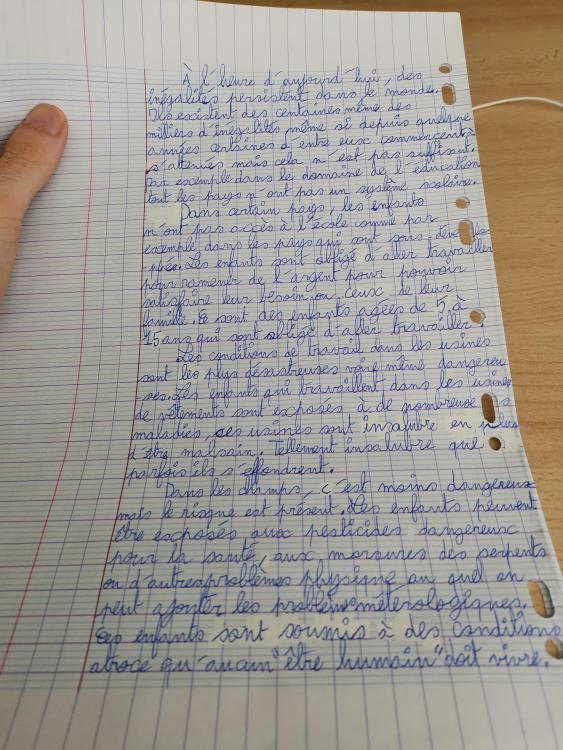 À l'heure d'aujourd'hui, des
inégalités persistent dans le monde.
Ils existent des centaines même des
milliers d'inégalités même si depuis quelque
années certaines d'entre eux commencent à
s'atténués mais cela n'est pas suffisant.
Par exemple dans le domaine de l'éducation
tout les pays n'ont pas un système scolaire.
Dans certain pays, les enfants
n'ont pas accès à l'école comme par
exemple dans les pays qui sont sous-développés.
Les enfants sont obligé d'aller travailler
pour ramener de l'argent pour pouvoir
satisfaire leur besoin ou ceux de leur
famille. Ce sont des enfants agées de 5 à
15 ans qui sont obligé d'aller travailler.
Les conditions de travail dans les usines
sont les plus désastreuses voire même dangereu
-ses. Les enfants qui travaillent dans les usines
de vêtements sont exposés à de nombreuse
maladies, ces usines sont insalubre en plus
d'être malsain. Tellement insalubre que
parfois ils s'effondrent.
Dans les champs, c'est moins dangereux
mais le risque est présent. Les enfants peuvent
être exposés aux pesticides dangereux
pour la santé, aux morsures des serpents
ou d'autres problèmes physique au quel on
peut ajouter les problèmes météorologiques.
Ces enfants sont soumis à des conditions
atroce qu'aucun "être humain" doit vivre.